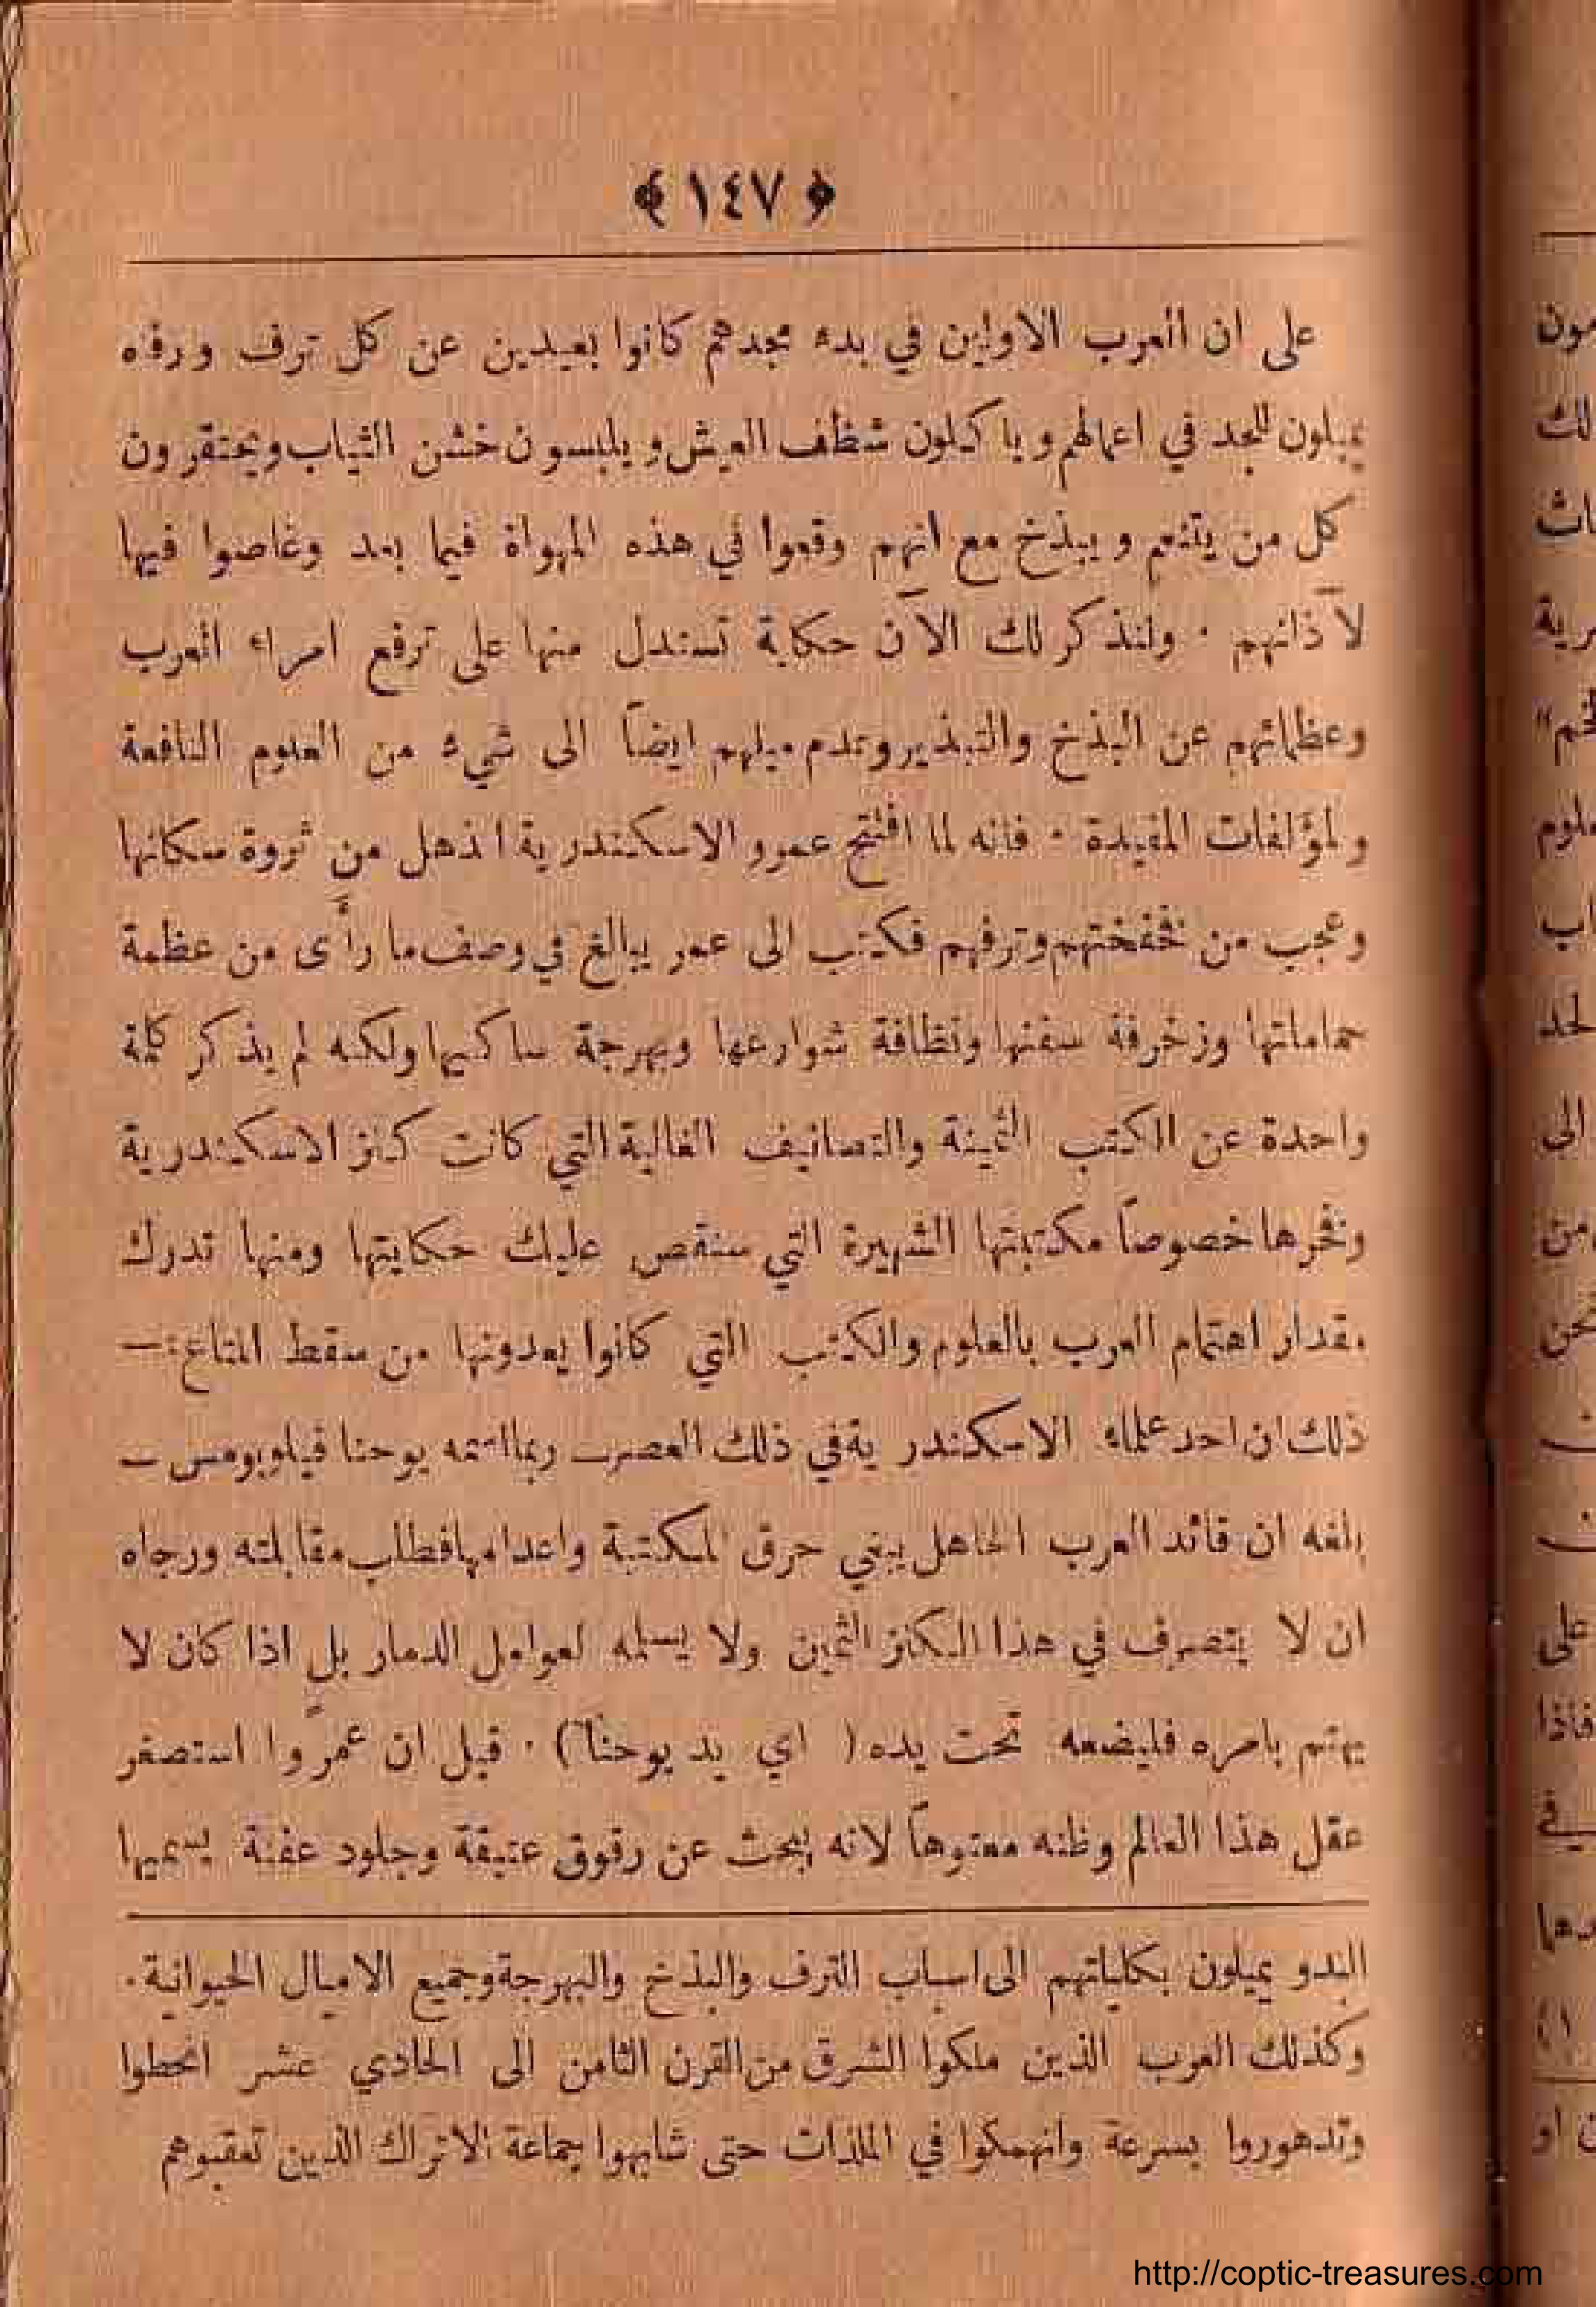 ﴿ ١٤٧ ﴾
على ان العرب الاولين في بدء مجدهم كانوا بعيدين عن كل ترف ورفه
يميلون للجد في اعمالهم وياكلون شظف العيش ويلبسون خشن الثياب ويحتقرون
كل من يتنعم ويبذخ مع انهم وقعوا في هذه المهواة فيما بعد وغاصوا فيها
لآذانهم ٠ ولنذكر لك الآن حكاية تستدل منها على ترفع امراء العرب
وعظمائهم عن البذخ والتبذير وعدم ميلهم ايضاً الى شيء من العلوم النافعة
والمؤلفات المفيدة ٠ فانه لما افتتح عمرو الاسكندرية انذهل من ثروة سكانها
وعجب من فخفختهم وترفهم فكتب الى عمر يبالغ في وصف ما رأى من عظمة
حماماتها وزخرفة سفنها ونظافة شوارعها وبهرجة ساكنيها ولكنه لم يذكر كلمة
واحدة عن الكتب الثمينة والتصانيف الغالية التي كانت كنز الاسكندرية
وفخرها خصوصاً مكتبتها الشهيرة التي سنقص عليك حكايتها ومنها تدرك
مقدار اهتمام العرب بالعلوم والكتب التي كانوا يعدونها من سقط المتاع :—
ذلك ان احد علماء الاسكندرية في ذلك العصر ربما اسمه يوحنا فيلوبومس —
بلغه ان قائد العرب الجاهل يبغي حرق المكتبة واعدامها فطلب مقابلته ورجاه
ان لا يتصرف في هذا الكنز الثمين ولا يسلمه لعوامل الدمار بل اذا كان لا
يهتم بامره فليضعه تحت يده ( اي يد يوحنا ) ٠ قيل ان عمرًوا استصغر
عقل هذا العالم وظنه معتوهاً لانه يبحث عن رقوق عتيقة وجلود عفنة يسميها
البدو يميلون بكلياتهم الى اسباب الترف والبذخ والبهرجة وجميع الاميال الحيوانية ٠
وكذلك العرب الذين ملكوا الشرق من القرن الثامن الى الحادي عشر انحطوا
وتدهوروا بسرعة وانهمكوا في الملذات حتى شابهوا جماعة الاتراك الذين تعقبوهم
http://coptic-treasures.com